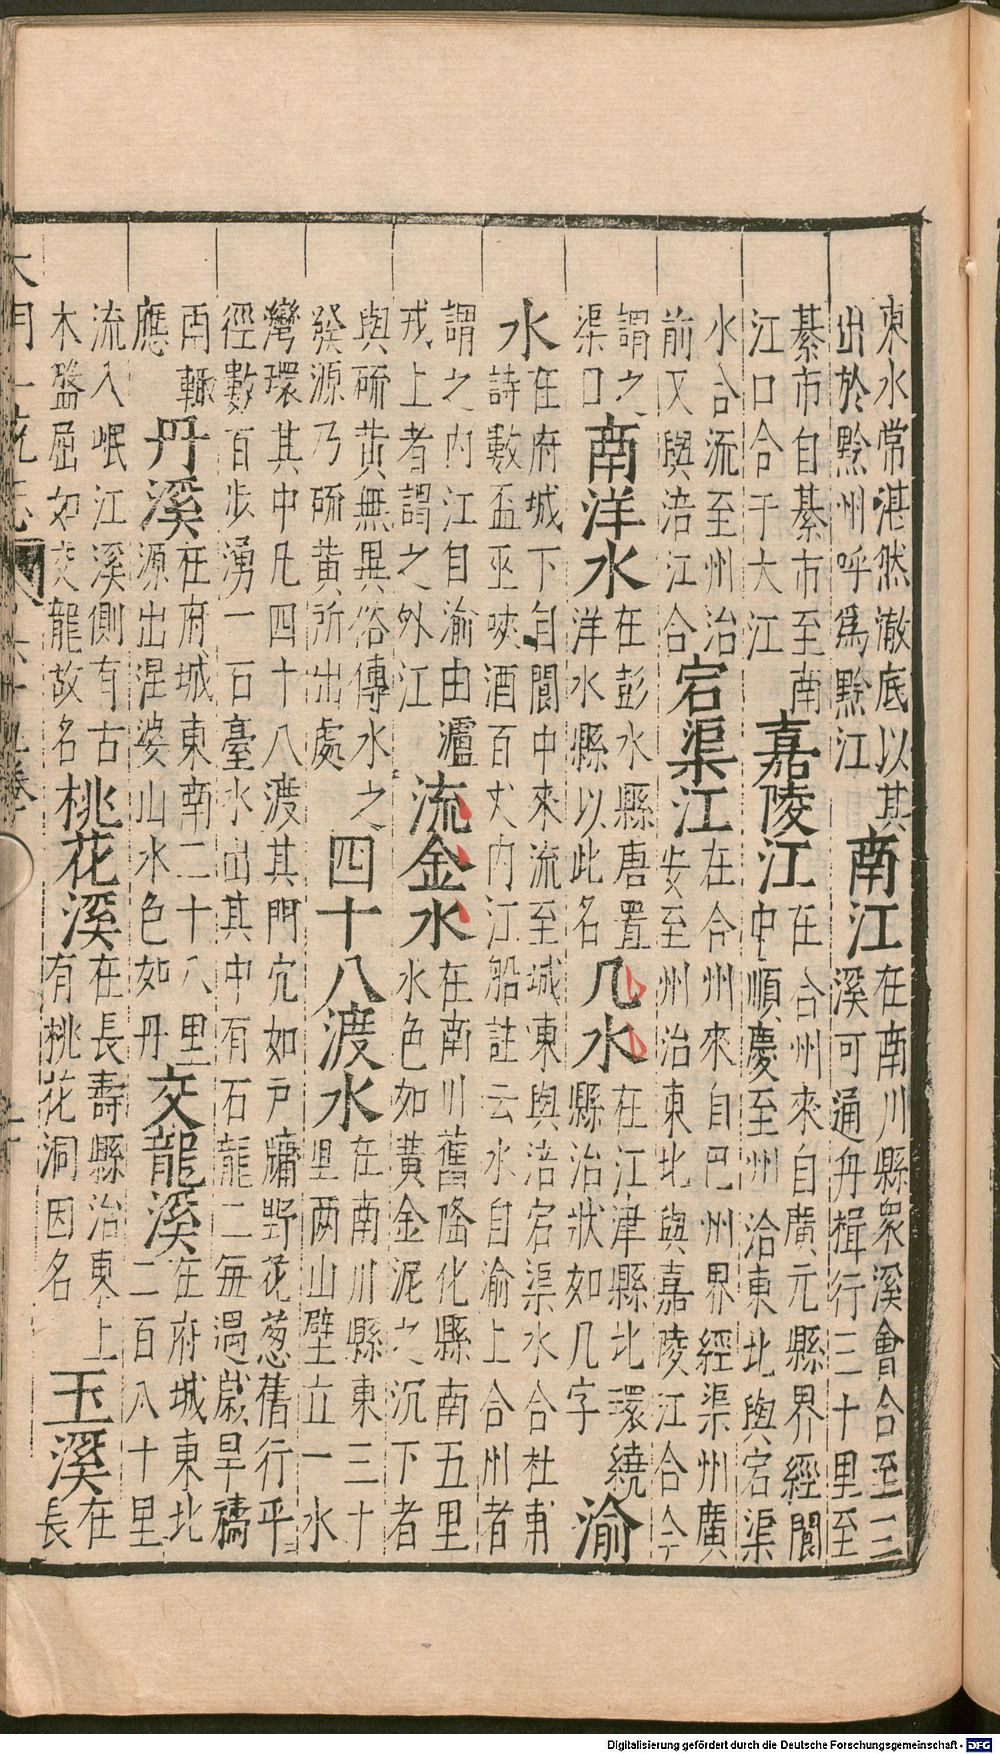 東水常湛然澈底以其
出於黔州呼爲黔江
南江
在南川縣衆溪會合至三
溪可通舟楫行三十里至
綦市自綦市至南
江口合于大江
嘉陵江
在合州來自廣元縣界經閬
中順慶至州治東北與宕渠
水合流至州治
前又與涪江合
宕渠江
在合州來自巴州界經渠州廣
安至州治東北與嘉陵江合今
謂之
渠口
南洋水
在彭水縣唐置
洋水縣以此名
几水
在江津縣北環繞
縣治狀如几字
渝
水
在府城下自閬中來流至城東與涪宕渠水合杜甫
詩數盃巫峽酒百丈内江船註云水自渝上合州者
謂之内江自渝由瀘
戎上者謂之外江
流金水
在南川舊隆化縣南五里
水色如黃金泥之沉下者
與硫黃無異俗傳水之
發源乃硫黃所出處
四十八渡水
在南川縣東三十
里两山壁立一水
灣環其中凡四十八渡其門宂如戸牖野花葱蒨行平
徑數百步湧一石臺水出其中有石龍二每遇歲旱禱
雨輙
應
丹溪
在府城東南二十八里
源出涅婆山水色如丹
交龍溪
在府城東北
二百八十里
流入岷江溪側有古
木盤屈如交龍故名
桃花溪
在長壽縣治東上
有桃花洞因名
玉溪
在
長
大明一統志
Digitalisierung gefördert durch die Deutsche Forschungsgemeinschaft - DFG